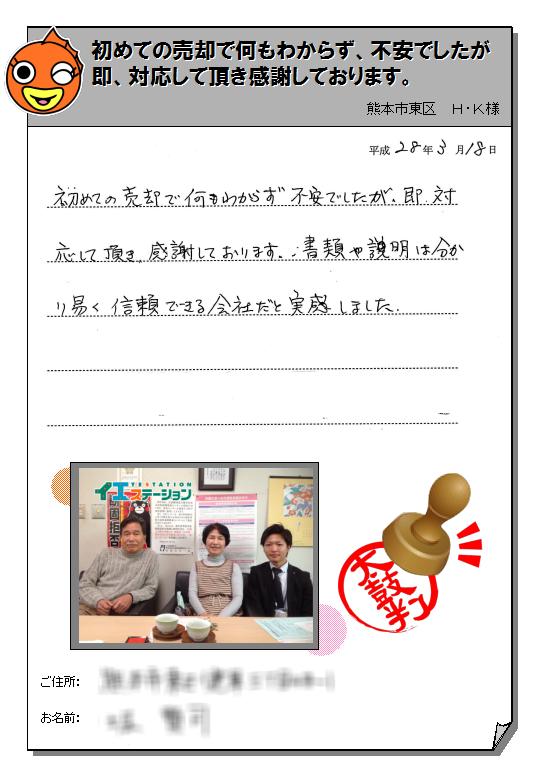 初めての売却で何もわからず、不安でしたが
即、対応して頂き感謝しております。
熊本市東区 H・K様
平成 28年 3月 18日
初めての売却で何もわからず 不安でしたが、即、対
応して頂き、感謝しております。書類や説明は分か
り易く信頼できる会社だと実感しました。
YESTATION
イエステーション
太鼓判
ご住所:
お名前: